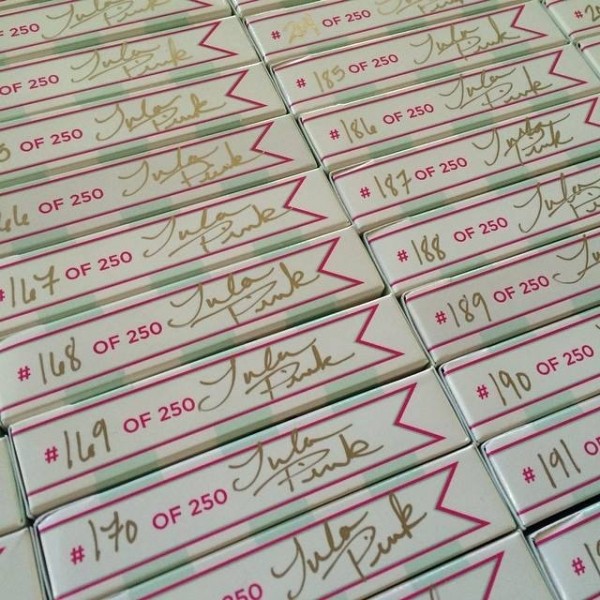 OF 250 Tula Pink
OF 250 Tula Pink
OF 250 Tula Pink
OF 250 Tula Pink
#167 OF 250 Tula Pink
#168 OF 250 Tula Pink
#169 OF 250 Tula Pink
#170 OF 250 Tula Pink
50 Tula Pink
# OF 250
#185 OF 250 Tula Pink
#186 OF 250 Tula Pink
#187 OF 250 Tula Pink
#188 OF 250 Tula Pink
#189 OF 250
#190 OF 250
#191 OF